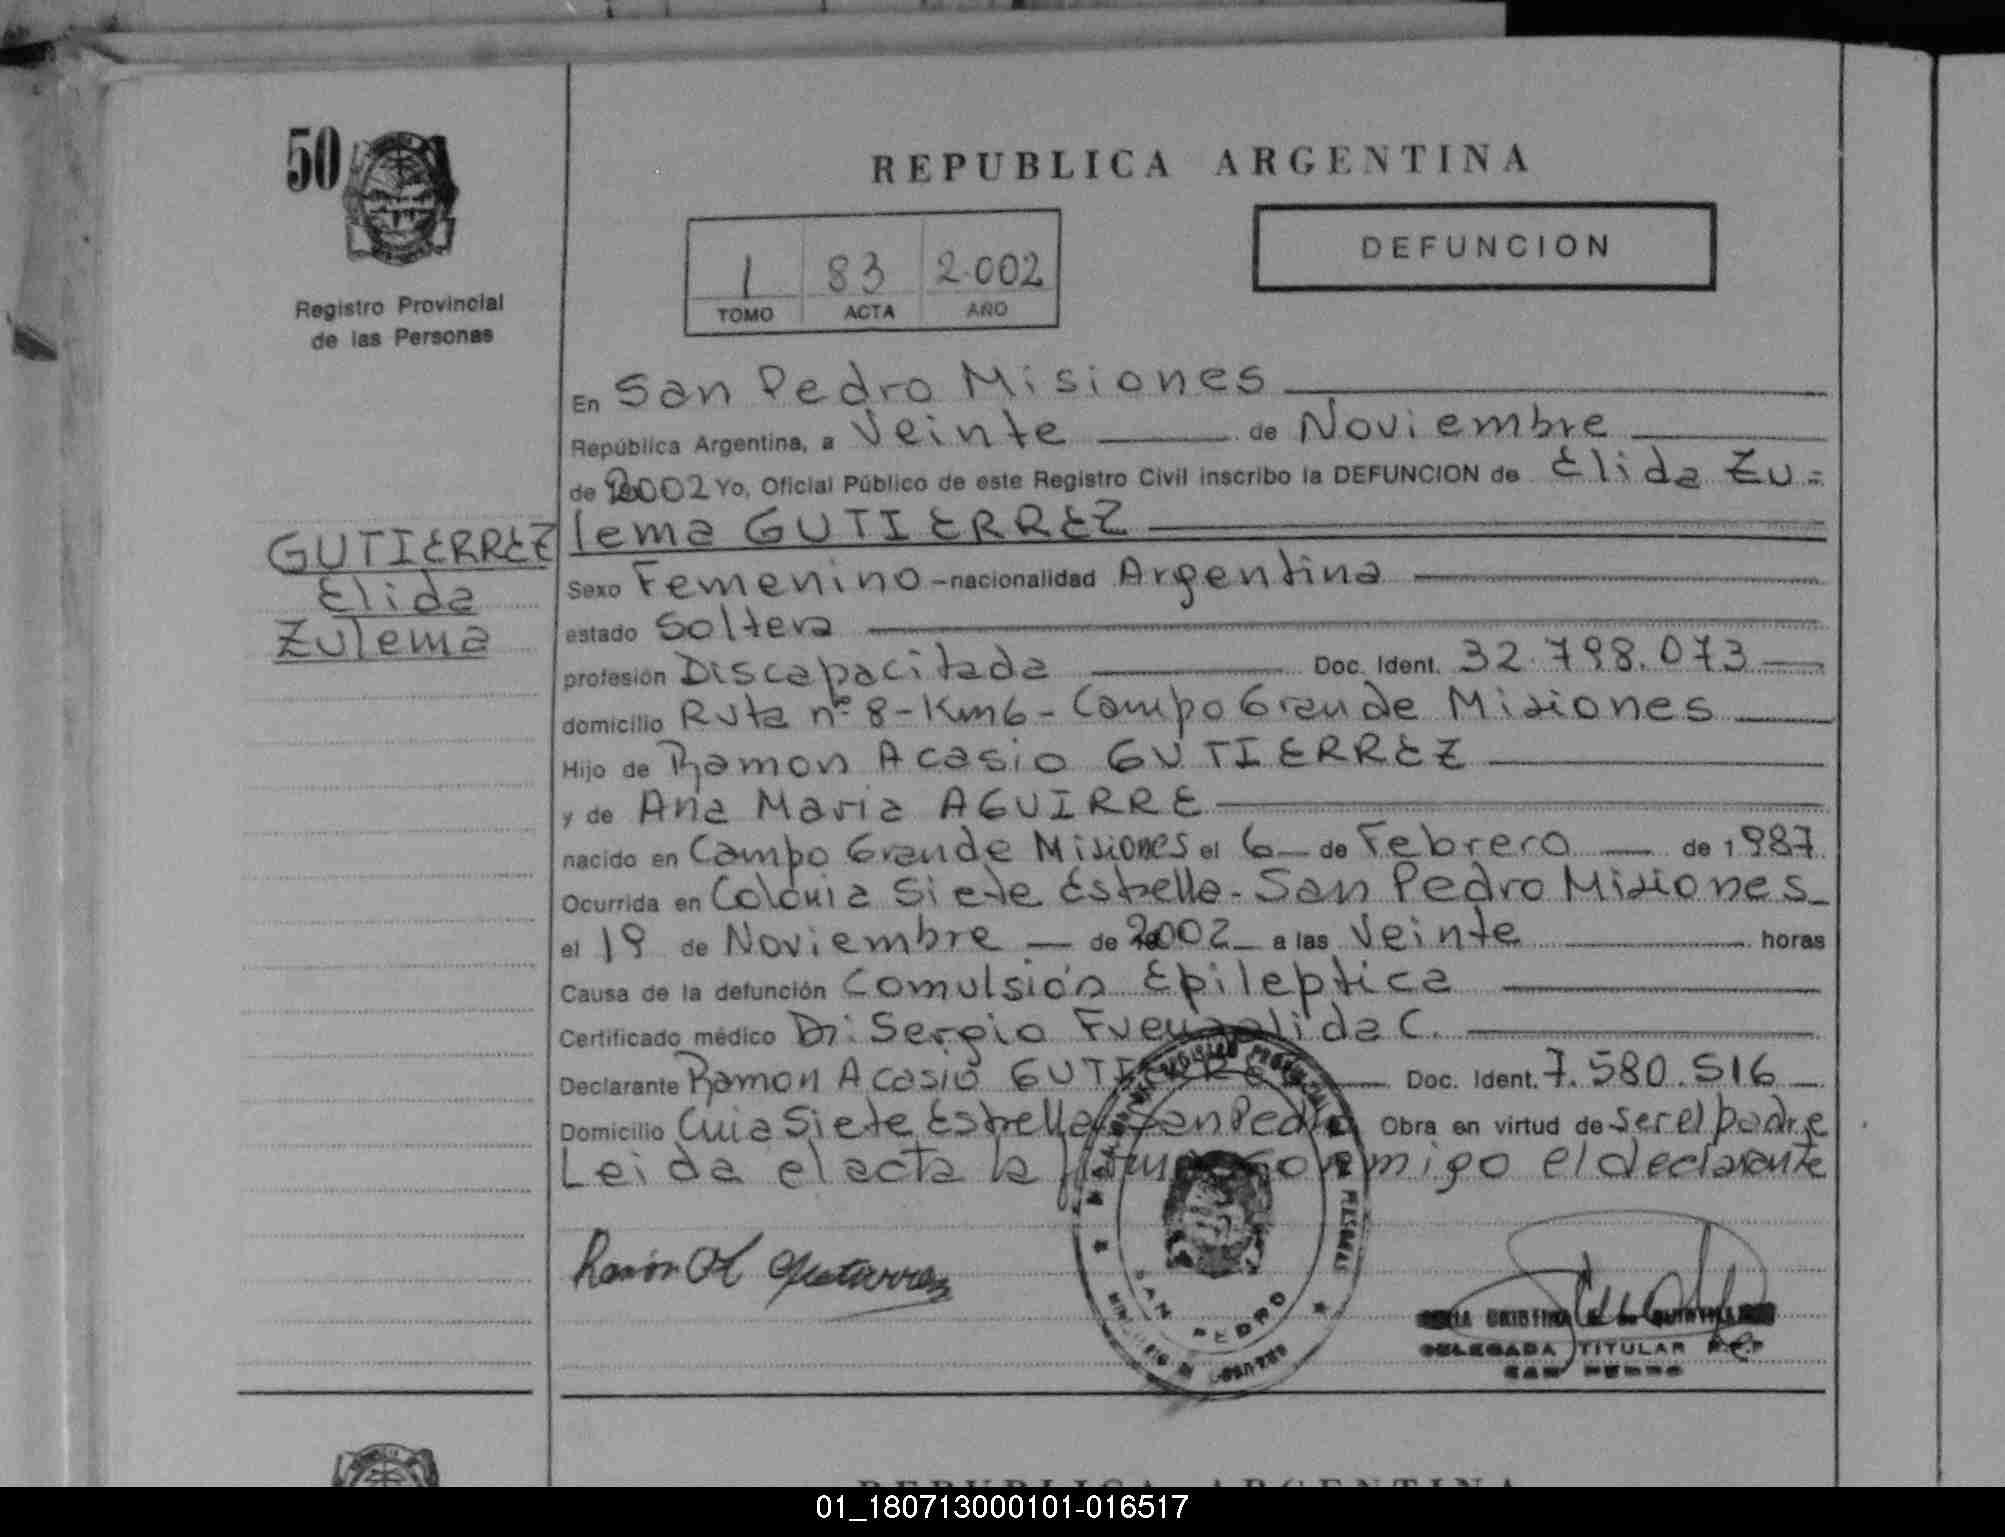 50
Registro Provincial
de las Personas
REPUBLICA ARGENTINA
DEFUNCION
1 83 2.002
TOMO ACTA AÑO
En San Pedro Misiones
República Argentina, a Veinte de Noviembre
de 2002 Yo, Oficial Público de este Registro Civil inscribo la DEFUNCION de Elida Zu=
lema GUTIERREZ
GUTIERREZ
Elida
Zulema
Sexo Femenino - nacionalidad Argentina
estado Soltera
profesión Discapacitada Doc. Ident. 32.798.073
domicilio Ruta nº 8 - Km 6 - Campo Grande Misiones
Hijo de Ramon Acasio GUTIERREZ
y de Ana Maria AGUIRRE
nacido en Campo Grande Misiones el 6 de Febrero de 1987
Ocurrida en Colonia Siete Estrella - San Pedro Misiones
el 19 de Noviembre de 2002 a las Veinte horas
Causa de la defunción Comulsión Epileptica
Certificado médico Dr. Sergio Fuenzalida C.
Declarante Ramon Acasio GUTIERREZ Doc. Ident. 7.580.516
Domicilio Cnia Siete Estrella San Pedro Obra en virtud de ser el padre
Leida el acta la firma conmigo el declarante
Ramón Gutierrez
SAN PEDRO
DELEGADA TITULAR
SAN PEDRO
REPUBLICA ARGENTINA
01_180713000101-016517